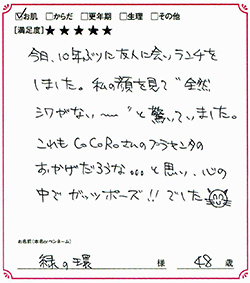 ☑お肌 □からだ □更年期 □生理 □その他
[満足度]★★★★★
今日、10年ぶりに友人に会いランチを
しました。私の顔を見て"全然
シワがない〜〜"と驚いていました。
これもCoCoRoさんのプラセンタの
おかげだろうな…と思い、心の
中でガッツポーズ!!でした
お名前(本名orペンネーム)
緑の環 様 48歳